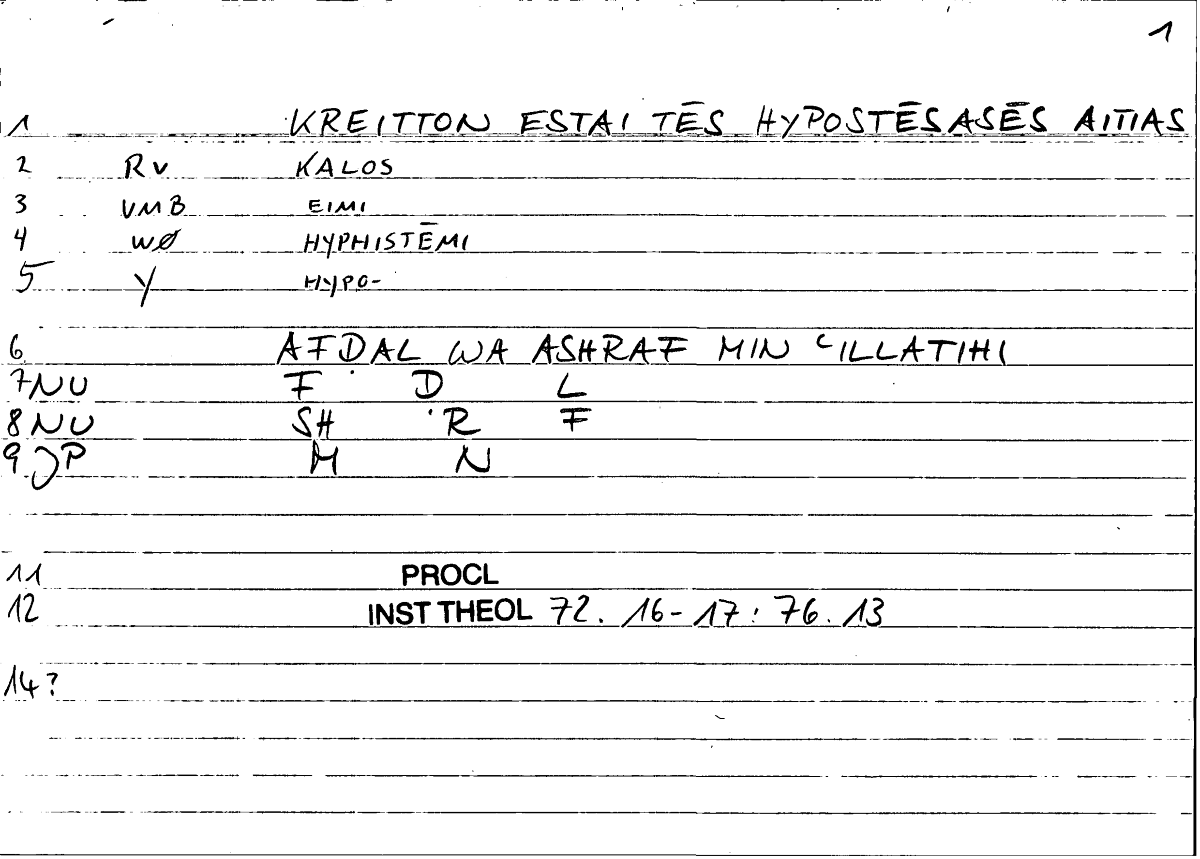 1
1 KREITTON ESTAI TĒS HYPOSTĒSASĒS AITIAS
2 Rv KALOS
3 VMB EIMI
4 wø HYPHISTĒMI
5 Y HYPO-
6 AFḌAL WA ASHRAF MIN ʿILLATIHI
7 NU F Ḍ L
8 NU SH R F
9 JP M N
11 PROCL
12 INST THEOL 72. 16-17: 76. 13
14?